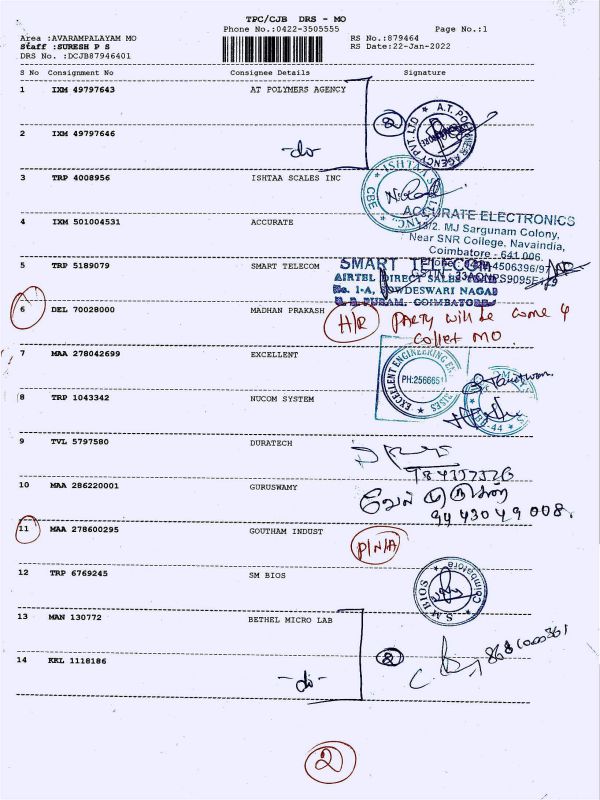 TPC/CJB DRS - MO
Phone No.:0422-3505555 Page No.:1
Area :AVARAMPALAYAM MO RS No.:879464
Staff :SURESH P S RS Date:22-Jan-2022
DRS No. :DCJB87946401
S No Consignment No Consignee Details Signature
1 IXM 49797643 AT POLYMERS AGENCY
2 IXM 49797646 -do- 2
A.T. POLYMER AGENCY PVT. LTD
3 TRP 4008956 ISHTAA SCALES INC
ISHTAA SCALES INC. CBE
4 IXM 501004531 ACCURATE
ACCURATE ELECTRONICS
MJ Sargunam Colony,
Near SNR College, Navaindia,
Coimbatore - 641 006.
5 TRP 5189079 SMART TELECOM
SMART TELECOM
AIRTEL DIRECT SALES
No. 1-A, GOWDESWARI NAGAR
COIMBATORE
6 DEL 70028000 MADHAN PRAKASH
H/R PARTY will be come &
collet MO.
7 MAA 278042699 EXCELLENT
EXCELLENT ENGINEERING ENTERPRISES
PH:2566651
8 TRP 1043342 NUCOM SYSTEM
9 TVL 5797580 DURATECH
10 MAA 286220001 GURUSWAMY
வேல் முருகன்
9443049008.
11 MAA 278600295 GOUTHAM INDUST P/N/A
12 TRP 6769245 SM BIOS
S.M BIOS Coimbatore
13 MAN 130772 BETHEL MICRO LAB
14 KKL 1118186 -do- 2
2